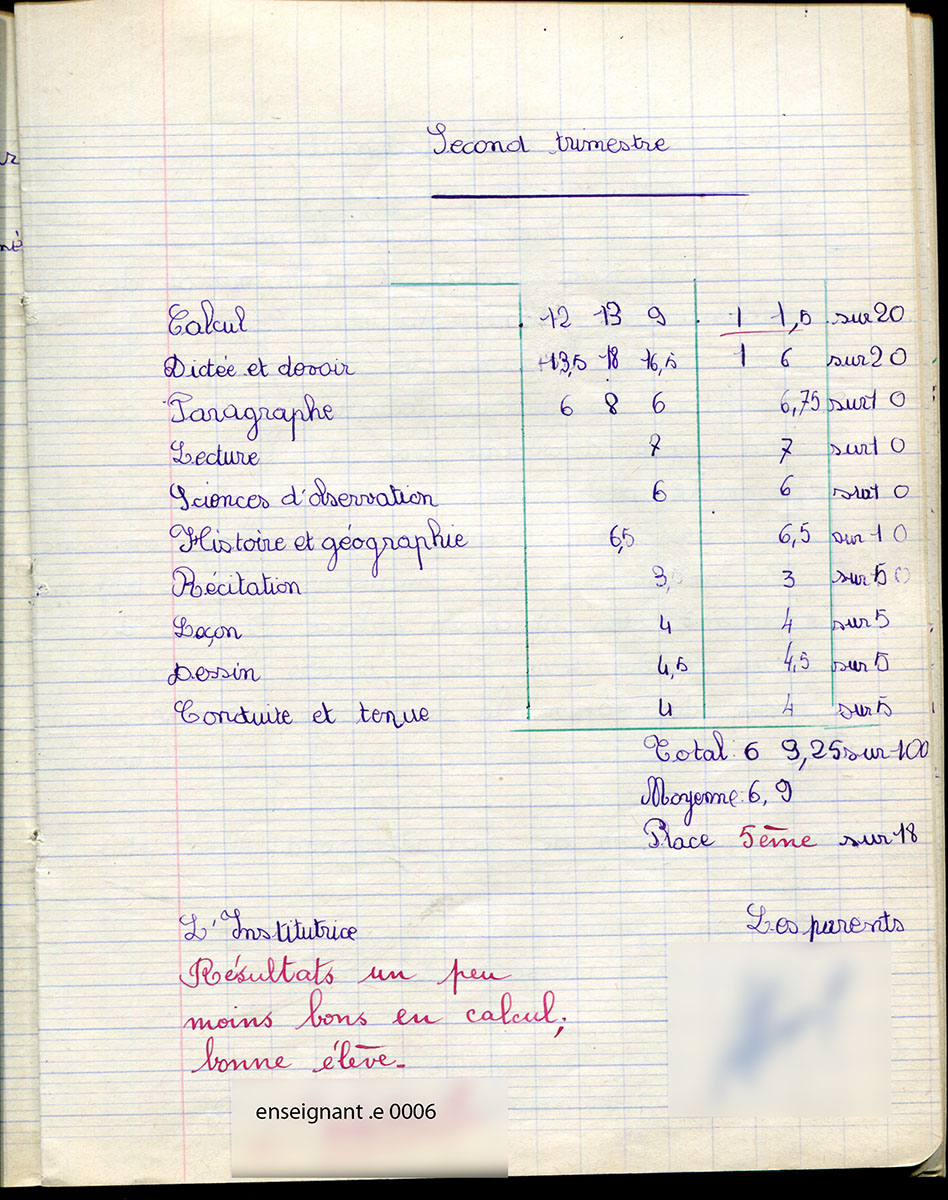 Second trimestre
Calcul 12 13 9 1 1,5 sur 20
Dictée et devoir 13,5 18 16,5 1 6 sur 20
Paragraphe 6 8 6 6,75 sur 10
Lecture 7 7 sur 10
Sciences d'observation 6 6 sur 10
Histoire et géographie 6,5 6,5 sur 10
Récitation 3, 3 sur 50
Leçon 4 4 sur 5
Dessin 4,5 4,5 sur 5
Conduite et tenue 4 4 sur 5
Total : 6 9,25 sur 100
Moyenne : 6,9
Place 5ème sur 18
L'Institutrice Les parents
Résultats un peu
moins bons en calcul ;
bonne élève.
enseignant .e 0006